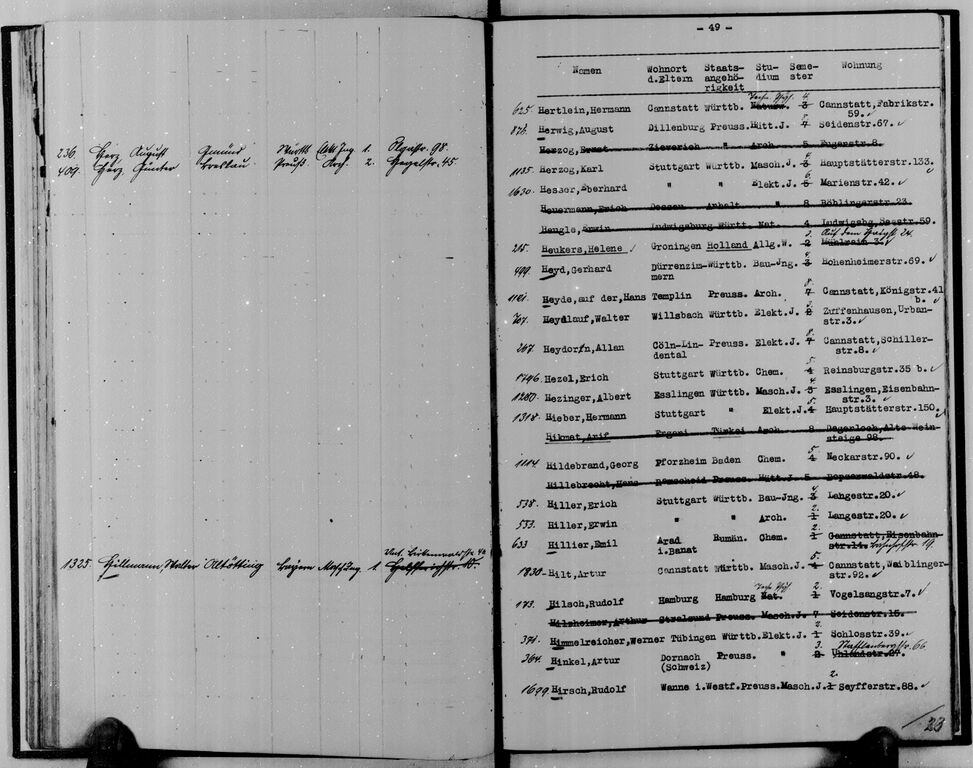 236. Herz, August Gmünd Württ. Masch. Ing. 1. Olgastr. 98.
409. Herz, Günter Breslau Preuß. Arch. 2. Hegelstr. 45.
Unt. Birkenwaldstr. 42
1325. Hillmann, Walter Altötting Bayern Masch. Ing. 1.
- 49 -
Namen Wohnort d.Eltern Staats-angehö-rigkeit Stu-dium Seme-ster Wohnung
4
625. Hertlein,Hermann Cannstatt Württb. Naturw. 3 Cannstatt,Fabrikstr.
59. ✓
876. Herwig,August Dillenburg Preuss. Hütt.J. 7 Seidenstr.67. ✓
Herzog,Ernst Zieverich " Arch. 5 Eugenstr.8.
1135. Herzog,Karl Stuttgart Württb. Masch.J. 3 Hauptstätterstr.133. ✓
1630. Hesser,Eberhard " " Elekt.J. 5 6. Marienstr.42. ✓
Heuermann,Erich Dessau Anhalt " 8 Böblingerstr.23
Heugle,Erwin Ludwigsburg Württ. Nat. 4 Ludwigsbg,Seestr.59.
3. Auf dem Haigst 24.
215. Heukers,Helene ✓ Groningen Holland Allg.W. 2 Mühlrain 3. ✓
499. Heyd,Gerhard Dürrenzim- Württb. Bau-Jng. 3 4. Hohenheimerstr.69. ✓
mern
1101. Heyde,auf der,Hans Templin Preuss. Arch. 7 8. Cannstatt,Königstr.41
b. ✓
707. Heydlauf,Walter Willsbach Württb. Elekt.J. 2 3. Zuffenhausen,Urban-
str.3. ✓
267. Heydorn,Allan Cöln-Lin- Preuss. Elekt.J. 7 8. Cannstatt,Schiller-
dental str.8. ✓
1796. Hezel,Erich Stuttgart Württb. Chem. 4 5. Reinsburgstr.35 b. ✓
1280. Hezinger,Albert Esslingen Württb. Masch.J. 3 4. Esslingen,Eisenbahn-
str.3. ✓
1318. Hieber,Hermann Stuttgart " Elekt.J. 4 5. Hauptstätterstr.150. ✓
Hikmet,Arif Ergani Türkei Arch. 8 Degerloch,Alte Wein-
steige 98.
1114. Hildebrand,Georg Pforzheim Baden Chem. 4 5. Neckarstr.90. ✓
Hillebrecht,Hans Remscheid Preuss. Hütt.J. 5 Bopserwaldstr.48.
538. Hiller,Erich Stuttgart Württb. Bau-Jng. 3 4. Langestr.20. ✓
553. Hiller,Erwin " " Arch. 1 2. Langestr.20. ✓
633 Hillier,Emil Arad Rumän. Chem. 1 2. Cannstatt,Eisenbahn
i.Banat str.14. Bahnhofstr. 19.
1830. Hilt,Artur Cannstatt Württb. Masch.J. 4 5. Cannstatt,Waiblinger-
str.92. ✓
173. Hilsch,Rudolf Hamburg Hamburg Nat. 1 2. Vogelsangstr.7. ✓
Hilzheimer,Arthur Stralsund Preuss. Masch.J. 7 Seidenstr.15.
391. Himmelreicher,Werner Tübingen Württb. Elekt.J. 1 2. Schlosstr.39. ✓
3. Stafflenbergstr. 66
364. Hinkel,Artur Dornach Preuss. " 2 Uhlandstr.27.
(Schweiz)
1699 Hirsch,Rudolf Wanne i.Westf. Preuss. Masch.J. 1 2. Seyfferstr.88. ✓
23